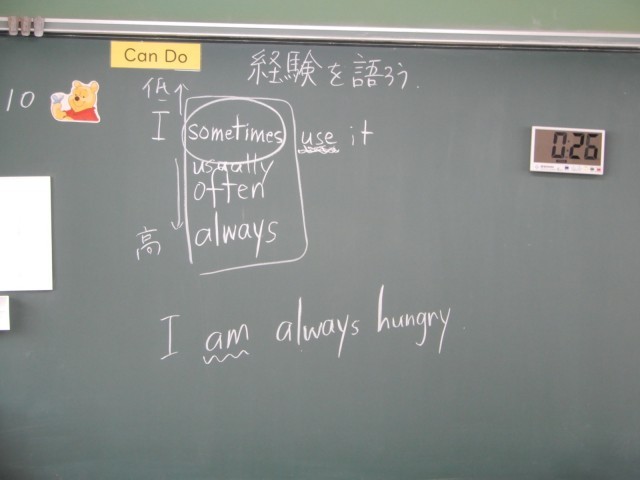 Can Do
経験を語ろう.
10
低
I sometimes use it
usually
often
always
高
0:26
I am always hungry.